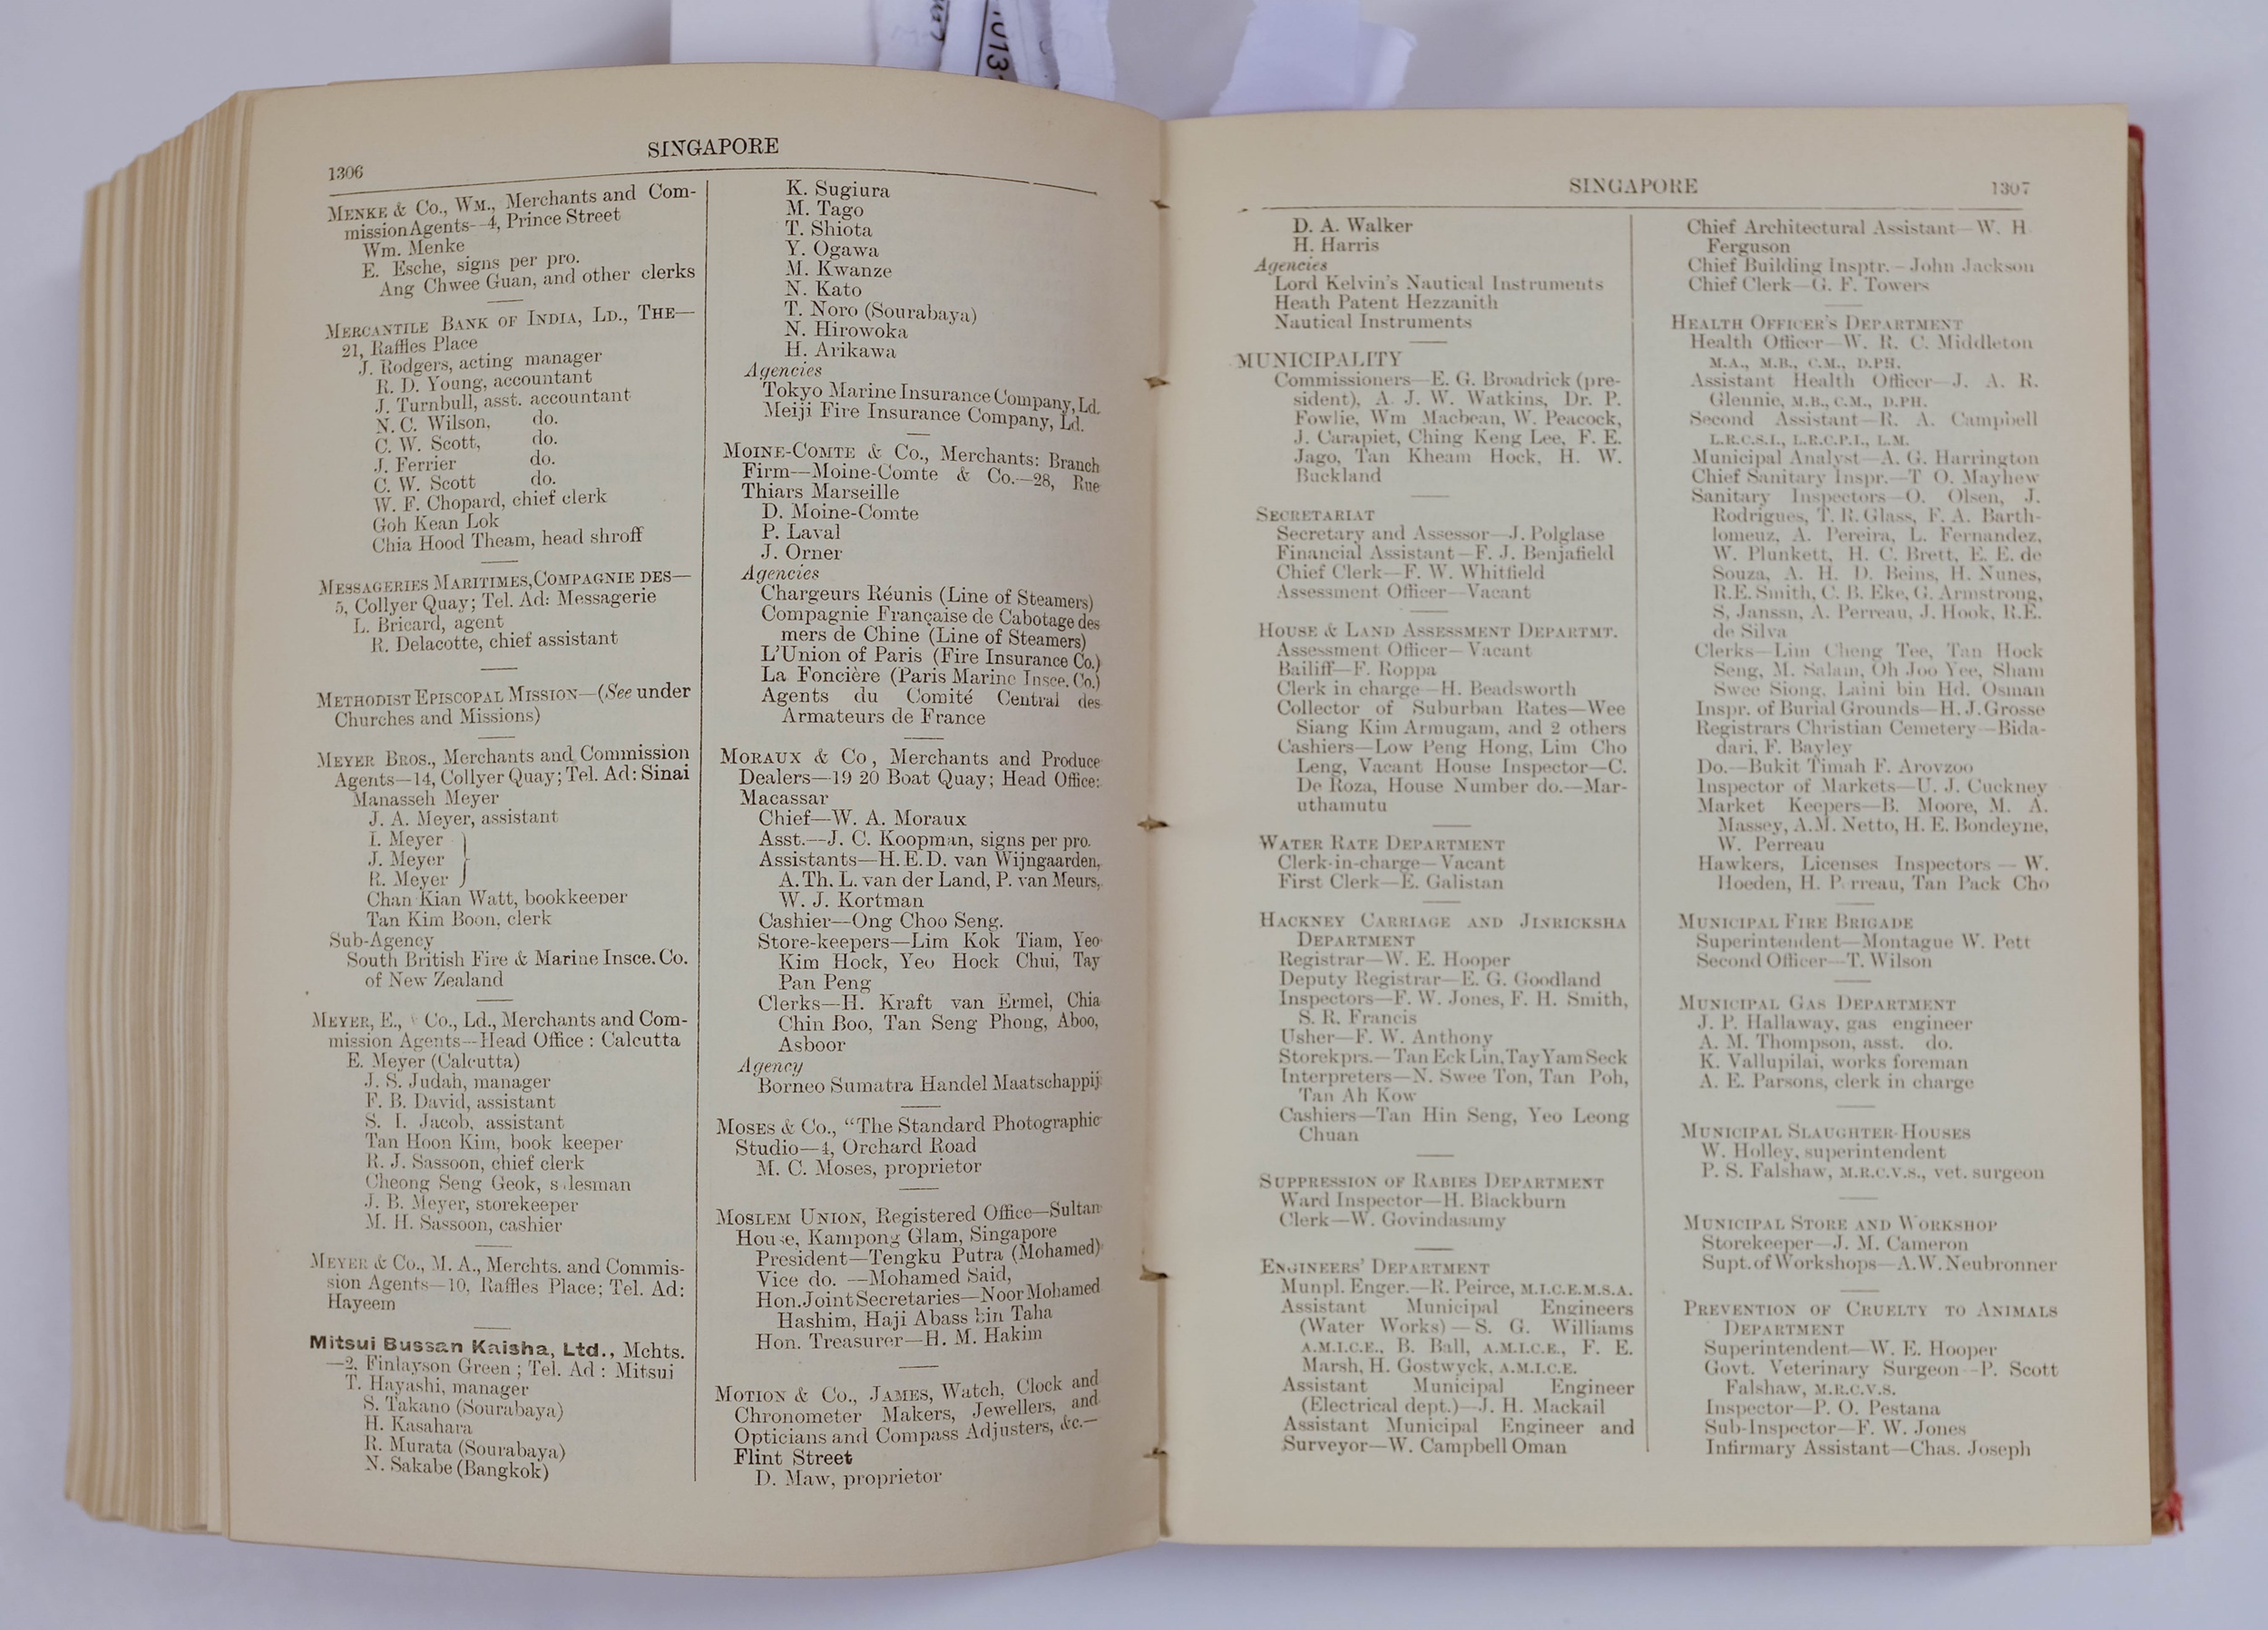 013
1306
SINGAPORE
MENKE & Co., WM., Merchants and Com-
mission Agents--4, Prince Street
Wm. Menke
E. Esche, signs per pro.
Ang Chwee Guan, and other clerks
MERCANTILE BANK OF INDIA, LD., THE—
21, Raffles Place
J. Rodgers, acting manager
R. D. Young, accountant
J. Turnbull, asst. accountant
N. C. Wilson, do.
C. W. Scott, do.
J. Ferrier do.
C. W. Scott do.
W. F. Chopard, chief clerk
Goh Kean Lok
Chia Hood Theam, head shroff
MESSAGERIES MARITIMES, COMPAGNIE DES—
5, Collyer Quay; Tel. Ad: Messagerie
L. Bricard, agent
R. Delacotte, chief assistant
METHODIST EPISCOPAL MISSION—(See under
Churches and Missions)
MEYER BROS., Merchants and Commission
Agents—14, Collyer Quay; Tel. Ad: Sinai
Manasseh Meyer
J. A. Meyer, assistant
I. Meyer
J. Meyer
R. Meyer
Chan Kian Watt, bookkeeper
Tan Kim Boon, clerk
Sub-Agency
South British Fire & Marine Insce. Co.
of New Zealand
MEYER, E., & Co., Ld., Merchants and Com-
mission Agents--Head Office : Calcutta
E. Meyer (Calcutta)
J. S. Judah, manager
F. B. David, assistant
S. I. Jacob, assistant
Tan Hoon Kim, book keeper
R. J. Sassoon, chief clerk
Cheong Seng Geok, s lesman
J. B. Meyer, storekeeper
M. H. Sassoon, cashier
MEYER & Co., M. A., Merchts. and Commis-
sion Agents—10, Raffles Place; Tel. Ad:
Hayeem
Mitsui Bussan Kaisha, Ltd., Mchts.
—2, Finlayson Green ; Tel. Ad : Mitsui
T. Hayashi, manager
S. Takano (Sourabaya)
H. Kasahara
R. Murata (Sourabaya)
N. Sakabe (Bangkok)
K. Sugiura
M. Tago
T. Shiota
Y. Ogawa
M. Kwanze
N. Kato
T. Noro (Sourabaya)
N. Hirowoka
H. Arikawa
Agencies
Tokyo Marine Insurance Company, Ld.
Meiji Fire Insurance Company, Ld.
MOINE-COMTE & Co., Merchants: Branch
Firm--Moine-Comte & Co.—28, Rue
Thiars Marseille
D. Moine-Comte
P. Laval
J. Orner
Agencies
Chargeurs Réunis (Line of Steamers)
Compagnie Française de Cabotage des
mers de Chine (Line of Steamers)
L'Union of Paris (Fire Insurance Co.)
La Foncière (Paris Marine Insce. Co.)
Agents du Comité Central des
Armateurs de France
MORAUX & Co, Merchants and Produce
Dealers—19 20 Boat Quay; Head Office:
Macassar
Chief—W. A. Moraux
Asst.—J. C. Koopman, signs per pro.
Assistants—H. E. D. van Wijngaarden,
A. Th. L. van der Land, P. van Meurs,
W. J. Kortman
Cashier—Ong Choo Seng.
Store-keepers—Lim Kok Tiam, Yeo
Kim Hock, Yeo Hock Chui, Tay
Pan Peng
Clerks—H. Kraft van Ermel, Chia
Chin Boo, Tan Seng Phong, Aboo,
Asboor
Agency
Borneo Sumatra Handel Maatschappij
MOSES & Co., "The Standard Photographic
Studio—4, Orchard Road
M. C. Moses, proprietor
MOSLEM UNION, Registered Office—Sultan
House, Kampong Glam, Singapore
President—Tengku Putra (Mohamed)
Vice do. —Mohamed Said,
Hon. Joint Secretaries—Noor Mohamed
Hashim, Haji Abass bin Taha
Hon. Treasurer—H. M. Hakim
MOTION & Co., JAMES, Watch, Clock and
Chronometer Makers, Jewellers, and
Opticians and Compass Adjusters, &c.—
Flint Street
D. Maw, proprietor
SINGAPORE
1307
D. A. Walker
H. Harris
Agencies
Lord Kelvin's Nautical Instruments
Heath Patent Hezzanith
Nautical Instruments
MUNICIPALITY
Commissioners—E. G. Broadrick (pre-
sident), A. J. W. Watkins, Dr. P.
Fowlie, Wm Macbean, W. Peacock,
J. Carapiet, Ching Keng Lee, F. E.
Jago, Tan Kheam Hock, H. W.
Buckland
SECRETARIAT
Secretary and Assessor—J. Polglase
Financial Assistant—F. J. Benjafield
Chief Clerk—F. W. Whitfield
Assessment Officer—Vacant
HOUSE & LAND ASSESSMENT DEPARTMT.
Assessment Officer—Vacant
Bailiff—F. Roppa
Clerk in charge—H. Beadsworth
Collector of Suburban Rates—Wee
Siang Kim Armugam, and 2 others
Cashiers—Low Peng Hong, Lim Cho
Leng, Vacant House Inspector—C.
De Roza, House Number do.—Mar-
uthamutu
WATER RATE DEPARTMENT
Clerk-in-charge—Vacant
First Clerk—E. Galistan
HACKNEY CARRIAGE AND JINRICKSHA
DEPARTMENT
Registrar—W. E. Hooper
Deputy Registrar—E. G. Goodland
Inspectors—F. W. Jones, F. H. Smith,
S. R. Francis
Usher—F. W. Anthony
Storekprs.—Tan Eck Lin, Tay Yam Seck
Interpreters—N. Swee Ton, Tan Poh,
Tan Ah Kow
Cashiers—Tan Hin Seng, Yeo Leong
Chuan
SUPPRESSION OF RABIES DEPARTMENT
Ward Inspector—H. Blackburn
Clerk—W. Govindasamy
ENGINEERS' DEPARTMENT
Munpl. Enger.—R. Peirce, M.I.C.E.M.S.A.
Assistant Municipal Engineers
(Water Works)—S. G. Williams
A.M.I.C.E., B. Ball, A.M.I.C.E., F. E.
Marsh, H. Gostwyck, A.M.I.C.E.
Assistant Municipal Engineer
(Electrical dept.)—J. H. Mackail
Assistant Municipal Engineer and
Surveyor—W. Campbell Oman
Chief Architectural Assistant—W. H
Ferguson
Chief Building Insptr.—John Jackson
Chief Clerk—G. F. Towers
HEALTH OFFICER'S DEPARTMENT
Health Officer—W. R. C. Middleton
M.A., M.B., C.M., D.PH.
Assistant Health Officer—J. A. R.
Glennie, M.B., C.M., D.PH.
Second Assistant—R. A. Campbell
L.R.C.S.I., L.R.C.P.I., L.M.
Municipal Analyst—A. G. Harrington
Chief Sanitary Inspr.—T O. Mayhew
Sanitary Inspectors—O. Olsen, J.
Rodrigues, T. R. Glass, F. A. Barth-
lomeuz, A. Pereira, L. Fernandez,
W. Plunkett, H. C. Brett, E. E. de
Souza, A. H. D. Beins, H. Nunes,
R.E. Smith, C. B. Eke, G. Armstrong,
S, Janssn, A. Perreau, J. Hook, R.E.
de Silva
Clerks—Lim Cheng Tee, Tan Hock
Seng, M. Salam, Oh Joo Yee, Sham
Swee Siong, Laini bin Hd. Osman
Inspr. of Burial Grounds—H. J. Grosse
Registrars Christian Cemetery—Bida-
dari, F. Bayley
Do.—Bukit Timah F. Arovzoo
Inspector of Markets—U. J. Cuckney
Market Keepers—B. Moore, M. A.
Massey, A.M. Netto, H. E. Bondeyne,
W. Perreau
Hawkers, Licenses Inspectors — W.
Hoeden, H. P rreau, Tan Pack Cho
MUNICIPAL FIRE BRIGADE
Superintendent—Montague W. Pett
Second Officer—T. Wilson
MUNICIPAL GAS DEPARTMENT
J. P. Hallaway, gas engineer
A. M. Thompson, asst. do.
K. Vallupilai, works foreman
A. E. Parsons, clerk in charge
MUNICIPAL SLAUGHTER-HOUSES
W. Holley, superintendent
P. S. Falshaw, M.R.C.V.S., vet. surgeon
MUNICIPAL STORE AND WORKSHOP
Storekeeper—J. M. Cameron
Supt. of Workshops—A.W. Neubronner
PREVENTION OF CRUELTY TO ANIMALS
DEPARTMENT
Superintendent—W. E. Hooper
Govt. Veterinary Surgeon—P. Scott
Falshaw, M.R.C.V.S.
Inspector—P. O. Pestana
Sub-Inspector—F. W. Jones
Infirmary Assistant—Chas. Joseph